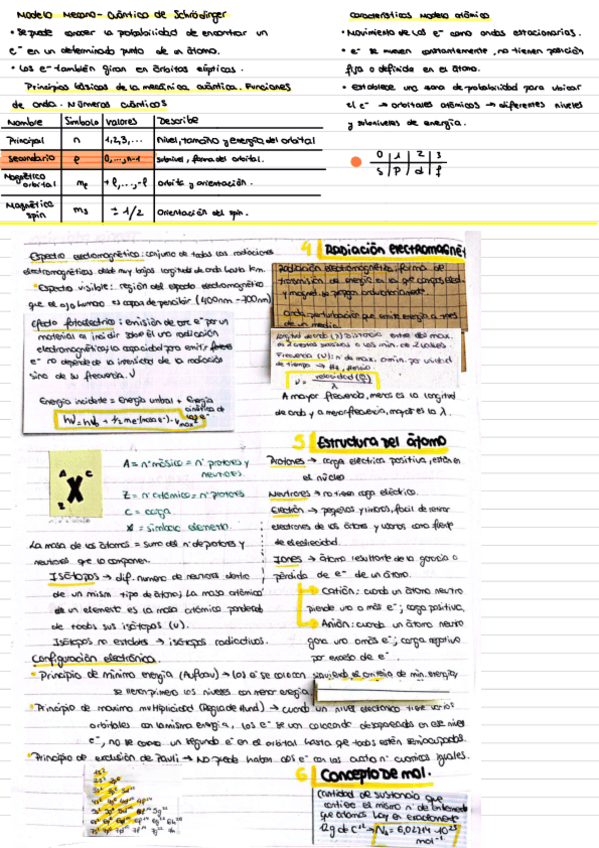 Modelo Mecano-Cuántico de Schrödinger
• Se puede conocer la probabilidad de encontrar un
e⁻ en un determinado punto de un átomo.
• Los e⁻ también giran en órbitas elípticas.
Principios básicos de la mecánica cuántica. Funciones
de onda. Números cuánticos
Nombre Símbolo Valores Describe
Principal n 1,2,3,... Nivel, tamaño y energía del orbital
Secundario ℓ 0,...,n-1 subnivel, forma del orbital.
Magnético orbital mℓ +ℓ,...,-ℓ orbita y orientación.
Magnético spin ms ± 1/2 Orientación del spin.
Características Modelo atómico
• Movimiento de los e⁻ como ondas estacionarias.
• e⁻ se mueven constantemente, no tienen posición
fija o definida en el átomo.
• establece una zona de probabilidad para ubicar
el e⁻ → orbitales atómicos → diferentes niveles
y subniveles de energía.
0 1 2 3
s p d f
Espectro electromagnético: conjunto de todas las radiaciones
electromagnéticas. desde muy bajas longitudes de onda hasta km.
• Espectro visible: región del espectro electromagnético
que el ojo humano es capaz de percibir (400nm-700nm)
Efecto fotoeléctrico: emisión de e⁻ por un
material al incidir sobre él una radiación
electromagnética, la capacidad para emitir
e⁻ no depende de la intensidad de la radiación
sino de su frecuencia. ν
Energía incidente = Energía umbral + Energía cinética
4 Radiación electromagnét
Radiación electromagnética: forma de
transmisión de energía en la que campos elect
y magnet. se propagan
Onda: perturbación que emite energía a través
de un medio.
Longitud de onda (λ) distancia entre dos max.
Frecuencia (ν): n° de max. o min. por unidad
de tiempo → Hz
ν = velocidad (c) / λ
A mayor frecuencia, menor es la longitud
de onda y a menor frecuencia, mayor es la λ.
A X C
Z
A = n° másico = n° protones y
neutrones.
Z = n° atómico = n° protones
C = carga
X = símbolo elemento.
La masa de los átomos = suma del n° de protones y
neutrones que lo componen.
Isótopos → dif. número de neutrones dentro
de un mismo tipo de átomo; La masa atómica
de un elemento es la masa atómica ponderada
de todos sus isótopos (u).
Isótopos no estables → isótopos radioactivos.
5 Estructura del átomo
Protones → carga eléctrica positiva, están en
el núcleo
Neutrones → no tienen carga eléctrica.
Electrón → pequeños y livianos, fácil de retirar
electrones de los átomos y usarlos como fuente
de electricidad.
Iones → átomo resultante de la ganancia o
pérdida de e⁻ de un átomo.
→ Catión: cuando un átomo neutro
pierde uno o más e⁻; carga positiva.
→ Anión: cuando un átomo neutro
gana uno o más e⁻; carga negativa
por exceso de e⁻.
Configuración electrónica.
• Principio de mínima energía (Aufbau) → los e⁻ se colocan siguiendo el criterio de min. energía,
se llenan primero los niveles con menor energía
• Principio de máxima multiplicidad (Regla de Hund) → cuando un nivel electrónico tiene varios
orbitales con la misma energía, los e⁻ se van colocando desapareados en ese nivel
e⁻, no se coloca un segundo e⁻ en el orbital hasta que todos estén semiocupados.
• Principio de exclusión de Pauli → No puede haber dos e⁻ con los cuatro n° cuánticos iguales.
6 Concepto de mol.
Cantidad de sustancia que
contiene el mismo n° de
que átomos hay en exactamente
12g de C¹² → NA = 6,02214·10²³
mol⁻¹